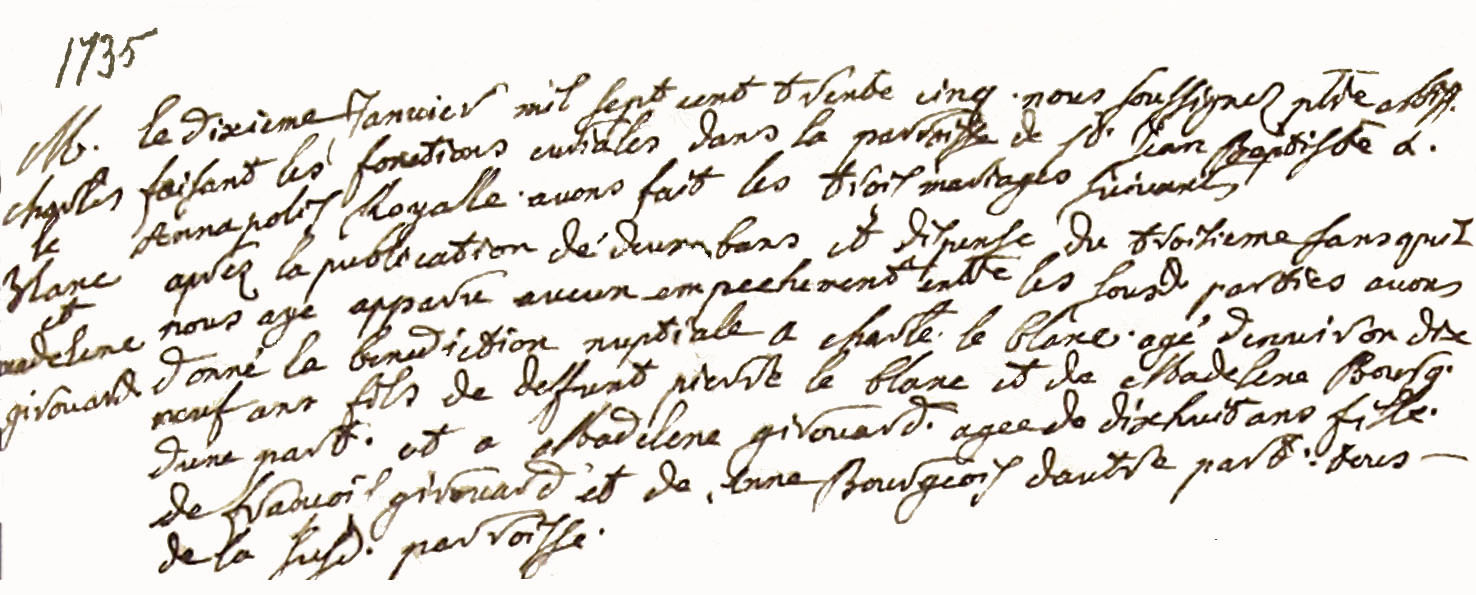 1735
M.
charles
le
blanc
et
madelene
girouard
le dixieme Janvier mil sept cent trente cinq. nous soussignez ptre
faisant les fonctions curiales dans la parroisse de St. Jean Baptiste d.
Annapolis Royalle. avons fait les trois mariages suivants
aprez la publication de deux bans et dispense du troisieme sans quil
nous aye apparu aucun empechement entre les sousd. parties avons
donné la benediction nuptiale a charle. le blanc. agé denviron dix
neuf ans fils de deffunt pierre le blanc et de Madelene Bourg.
dune part. et a Madelene girouard. agee de dixhuit ans fille.
de francois girouard et de Anne Bourgeois dautre part. tous
de la susd. parroisse.